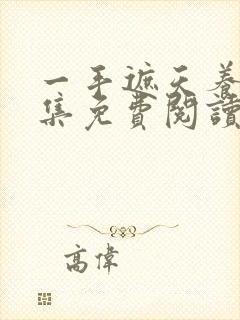 一手遮天養
集免費閱讀
高偉